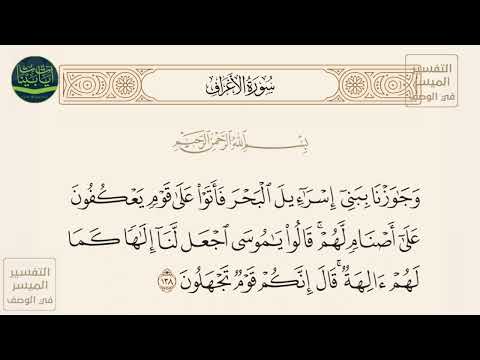 التفسير
الميسر
في الوصف
آيات بينات
سُورَةُ الأَعْرَافِ
بِسْمِ اللَّهِ الرَّحْمَٰنِ الرَّحِيمِ
وَجَٰوَزْنَا بِبَنِيٓ إِسْرَٰٓءِيلَ ٱلْبَحْرَ فَأَتَوْا۟ عَلَىٰ قَوْمٍ يَعْكُفُونَ
عَلَىٰٓ أَصْنَامٍ لَّهُمْ ۚ قَالُوا۟ يَٰمُوسَى ٱجْعَل لَّنَآ إِلَٰهًا كَمَا
لَهُمْ ءَالِهَةٌ ۚ قَالَ إِنَّكُمْ قَوْمٌ تَجْهَلُونَ ١٣٨
التفسير
الميسر
في الوصف